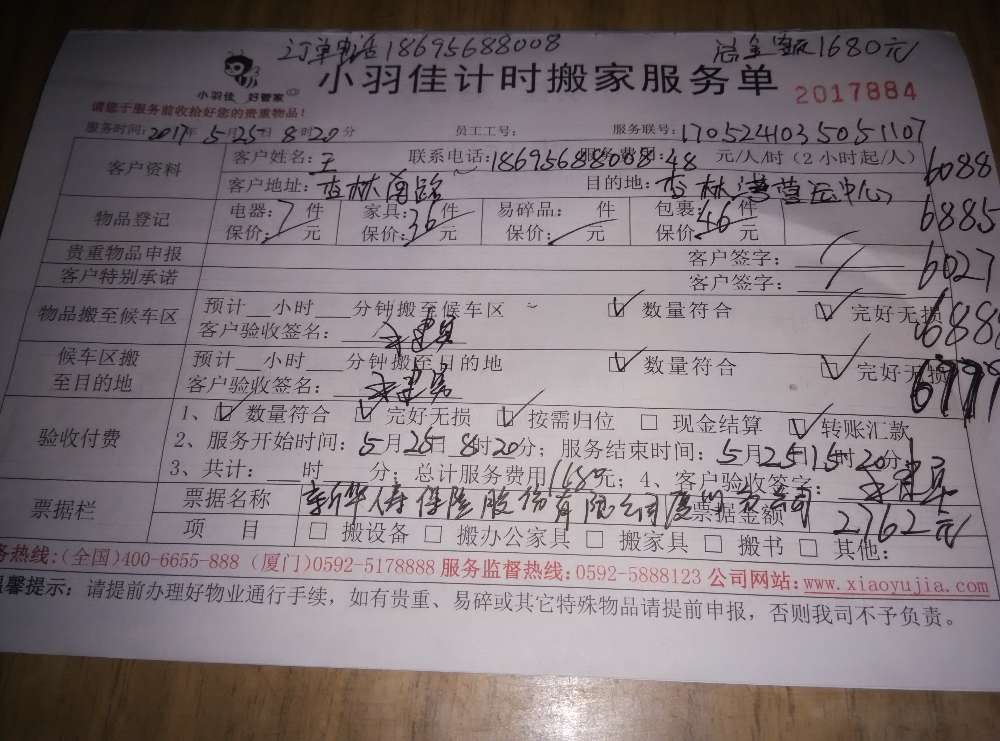 订单电话18695688008 总金额1680元
小羽佳 好管家
小羽佳计时搬家服务单 2017884
请您于服务前收拾好您的贵重物品!
服务时间:2017年5月25日8时20分 员工工号: 服务联号:170524103505 1107
客户资料 客户姓名:王 联系电话:18695688008 服务费用:48元/人/时(2小时起/人) 6088
客户地址:杏林南路 目的地:杏林湾营运中心
物品登记 电器:7件 家具:36件 易碎品: 件 包裹:46件 6885
保价: 元 保价: 元 保价: 元 保价: 元
贵重物品申报 客户签字: 6027
客户特别承诺 客户签字:
物品搬至候车区 预计__小时___分钟搬至候车区 ~ ☑ 数量符合 ☑ 完好无损
客户验收签名:
候车区搬至目的地 预计__小时___分钟搬至目的地 ☑ 数量符合 ☑ 完好无损
客户验收签名:
验收付费 1、☑ 数量符合 ☑ 完好无损 ☑ 按需归位 □ 现金结算 ☑ 转账汇款
2、服务开始时间:5月25日8时20分;服务结束时间:5月25日15时20分
3、共计:___时___分;总计服务费用1680元;4、客户验收签字:
票据栏 票据名称 新华人寿保险股份有限公司厦门分公司 票据金额 2762元
项 目 □ 搬设备 □ 搬办公家具 □ 搬家具 □ 搬书 □ 其他:
务热线:(全国)400-6655-888 (厦门)0592-5178888 服务监督热线:0592-5888123 公司网站:www.xiaoyujia.com
温馨提示:请提前办理好物业通行手续,如有贵重、易碎或其它特殊物品请提前申报,否则我司不予负责。